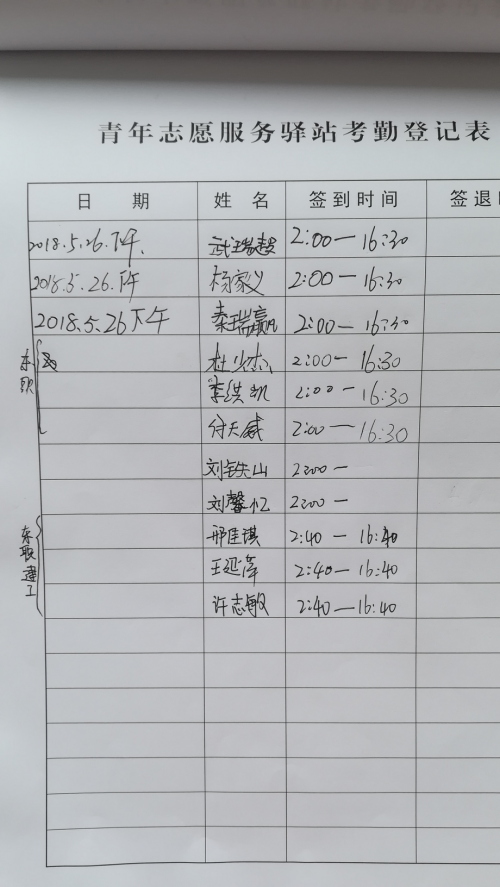 青年志愿服务驿站考勤登记表
日 期 姓 名 签到时间 签退时
2018.5.26.下午. 武瑞超 2:00—16:30
2018.5.26.下午 杨家义 2:00—16:30
2018.5.26下午 秦瑞赢 2:00—16:30
杜少杰 2:00—16:30
李洪凯 2:00—16:30
付天威 2:00—16:30
刘铁山 2:00—
刘馨忆 2:00—
东联建工
邢佳琪 2:40—16:40
王延萍 2:40—16:40
许志敏 2:40—16:40